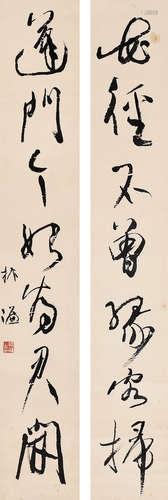 花徑不曾緣客掃
蓬門今始為君開
林通